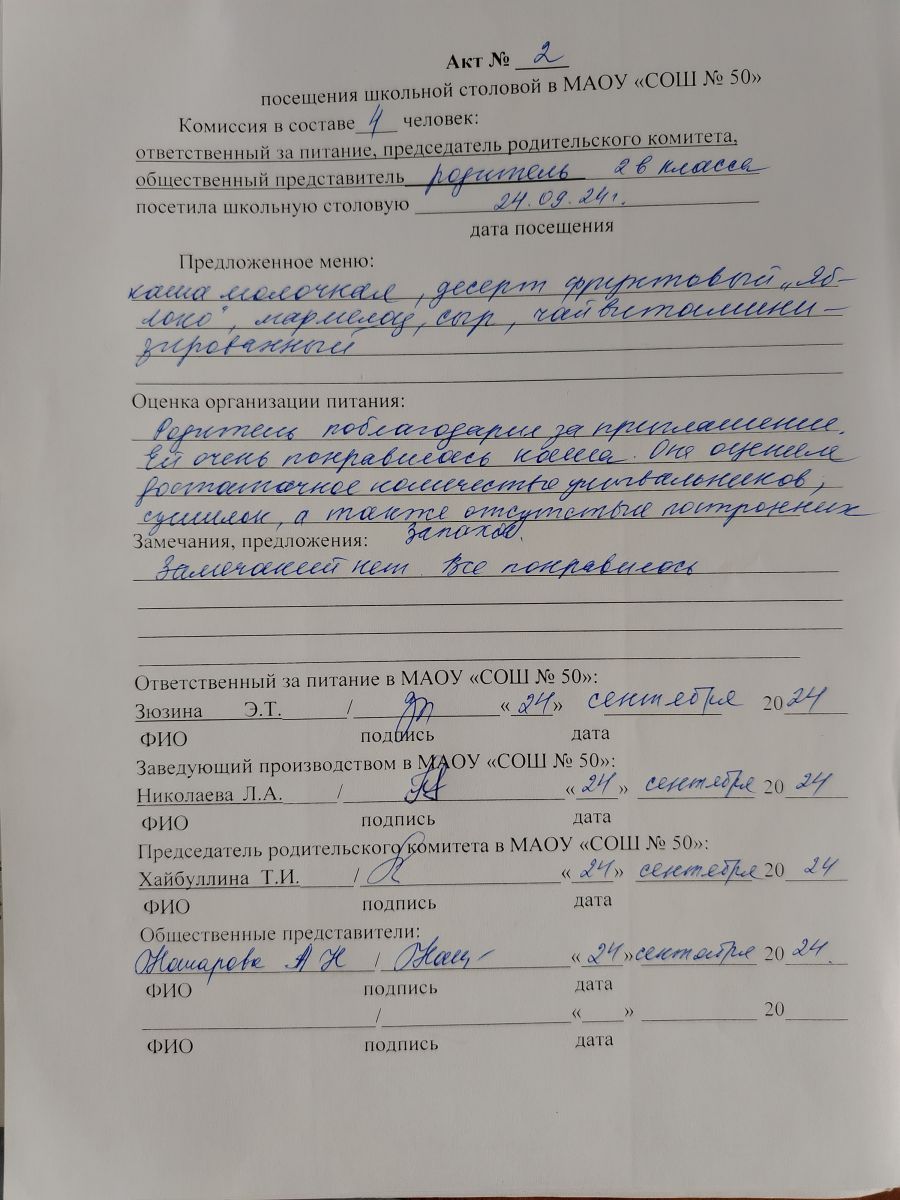 Акт № 2
посещения школьной столовой в МАОУ «СОШ № 50»
Комиссия в составе 4 человек:
ответственный за питание, председатель родительского комитета,
общественный представитель родитель 2 в класса
посетила школьную столовую 24.09.24г.
дата посещения
Предложенное меню:
каша молочная, десерт фруктовый „Яб-
локо", мармелад, сыр, чай витамини-
зированный
Оценка организации питания:
Родитель поблагодарил за приглашение.
Ей очень понравилась каша. Она оценила
достаточное количество умывальников,
сушилок, а также отсутствие посторонних
запахов.
Замечания, предложения:
Замечаний нет. Все понравилось
Ответственный за питание в МАОУ «СОШ № 50»:
Зюзина Э.Т. / «24» сентября 2024
ФИО подпись дата
Заведующий производством в МАОУ «СОШ № 50»:
Николаева Л.А. / «24» сентября 2024
ФИО подпись дата
Председатель родительского комитета в МАОУ «СОШ № 50»:
Хайбуллина Т.И. / «24» сентября 2024
ФИО подпись дата
Общественные представители:
А Н / «24» сентября 2024.
ФИО подпись дата
/ « » 20
ФИО подпись дата